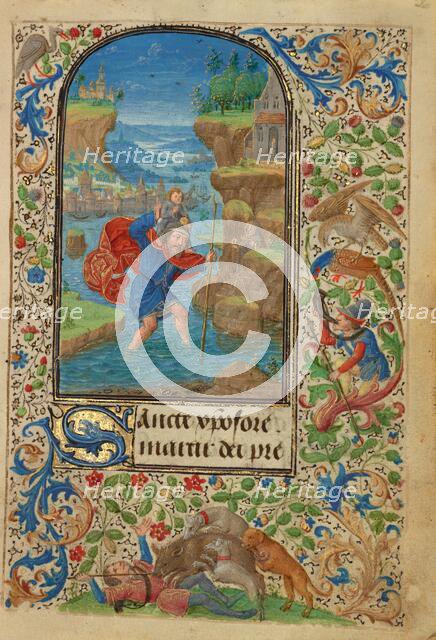 Heritage Heritage Heritage
Heritage Heritage Heritage
Sancte xp̄ofore
martir dei pre
Heritage Heritage Heritage